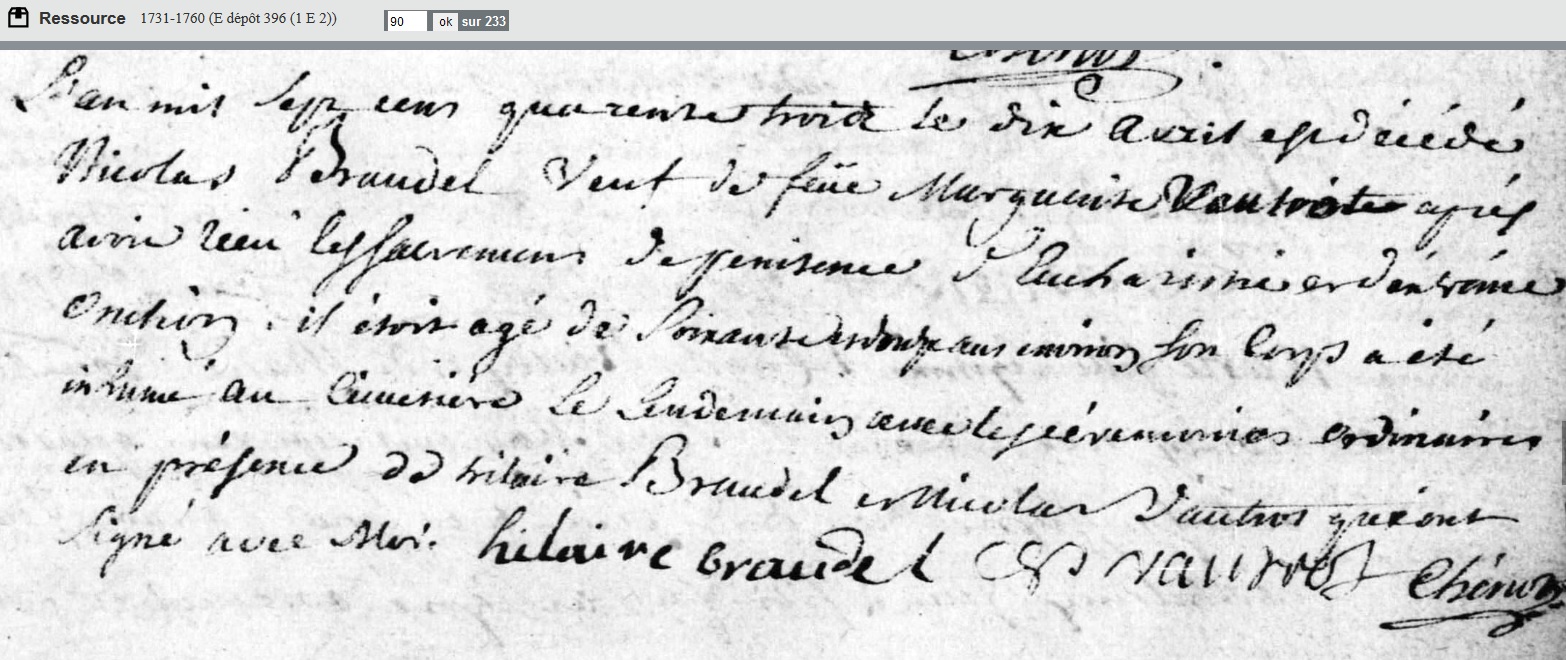 Ressource 1731-1760 (E dépôt 396 (1 E 2)) 90 ok sur 233
L'an mil sept cens quarente trois le dix avril est décédé
Nicolas Braudel Veuf de feüe Marguerite Vautrote après
avoir reçu les sacremens de penitence d'Eucharistie et d'extrême
onction. il étoit agé de soixante et douze ans environ son corps a été
inhumé au cimetière le lendemain avec les cérémonies ordinaires
en présence de hilaire Braudel et Nicolas Vautrot qui ont
signé avec Moi. hilaire braudel N vautrot Chénon